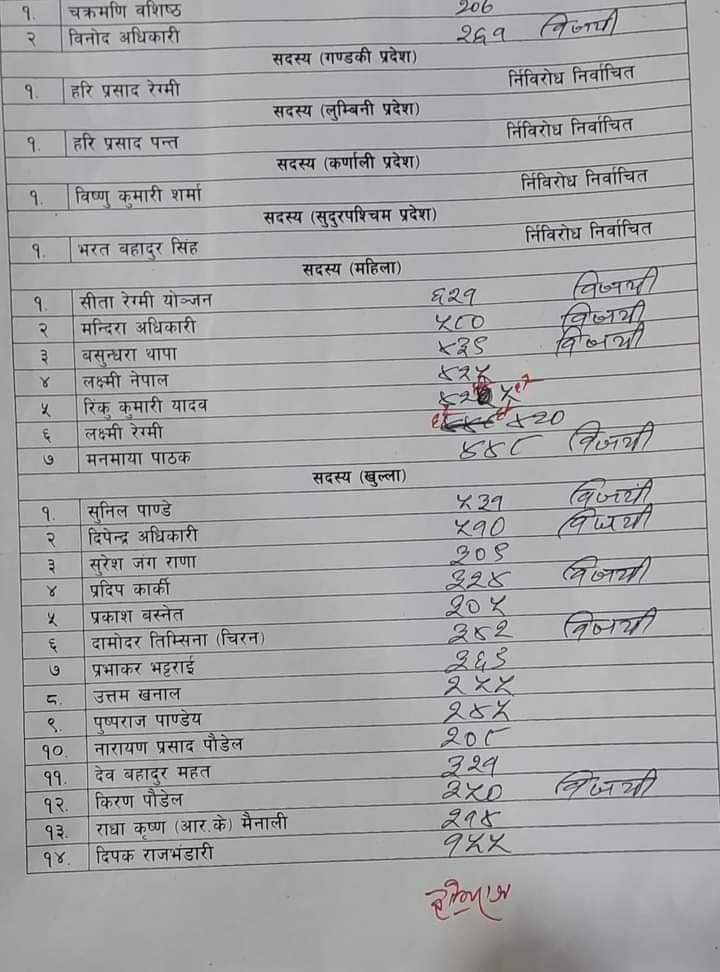 १. चक्रमणि वशिष्ठ २०६
२ विनोद अधिकारी २६१ विजयी
सदस्य (गण्डकी प्रदेश)
१. हरि प्रसाद रेग्मी निर्विरोध निर्वाचित
सदस्य (लुम्बिनी प्रदेश)
१. हरि प्रसाद पन्त निर्विरोध निर्वाचित
सदस्य (कर्णाली प्रदेश)
१. विष्णु कुमारी शर्मा निर्विरोध निर्वाचित
सदस्य (सुदुरपश्चिम प्रदेश)
१. भरत बहादुर सिंह निर्विरोध निर्वाचित
सदस्य (महिला)
१. सीता रेग्मी योञ्जन ६२१ विजयी
२ मन्दिरा अधिकारी ५८० विजयी
३ बसुन्धरा थापा ४३९ विजयी
४ लक्ष्मी नेपाल ४२५
५ रिंकु कुमारी यादव
६ लक्ष्मी रेग्मी ४२०
७ मनमाया पाठक ४४८ विजयी
सदस्य (खुल्ला)
१. सुनिल पाण्डे ५३१ विजयी
२ दिपेन्द्र अधिकारी ५१० विजयी
३ सुरेश जंग राणा ३०९
४ प्रदिप कार्की ३२४ विजयी
५ प्रकाश बस्नेत २०५
६ दामोदर तिम्सिना (चिरन) ३४२ विजयी
७ प्रभाकर भट्टराई २६९
८. उत्तम खनाल २५५
९. पुष्पराज पाण्डेय २४५
१०. नारायण प्रसाद पौडेल २०८
११. देव बहादुर महत ३२१
१२. किरण पौडेल विजयी
१३. राधा कृष्ण (आर.के) मैनाली २१४
१४. दिपक राजभंडारी १५५